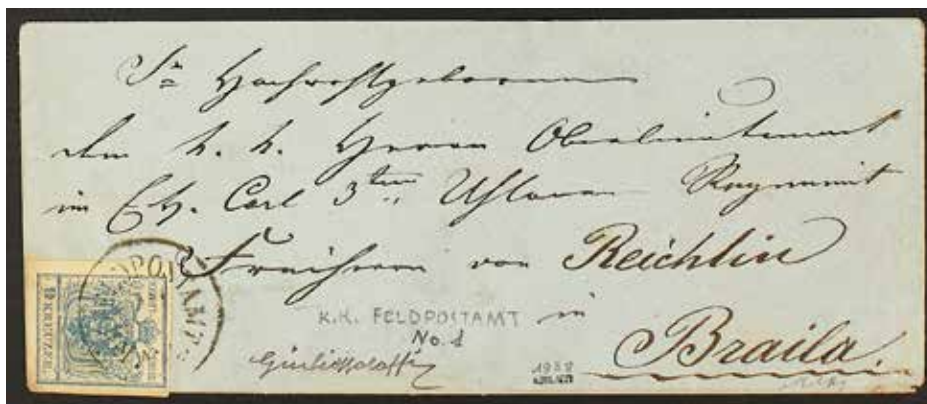 Sr Hochwohlgeboren
dem k. k. Herrn Oberlieutenant
im Eh. Carl 3ten Uhlanen Regiment
Freiherrn von Reichlin
in
Braila.
K.K. FELDPOSTAMT
No. 1
9 KREUZER